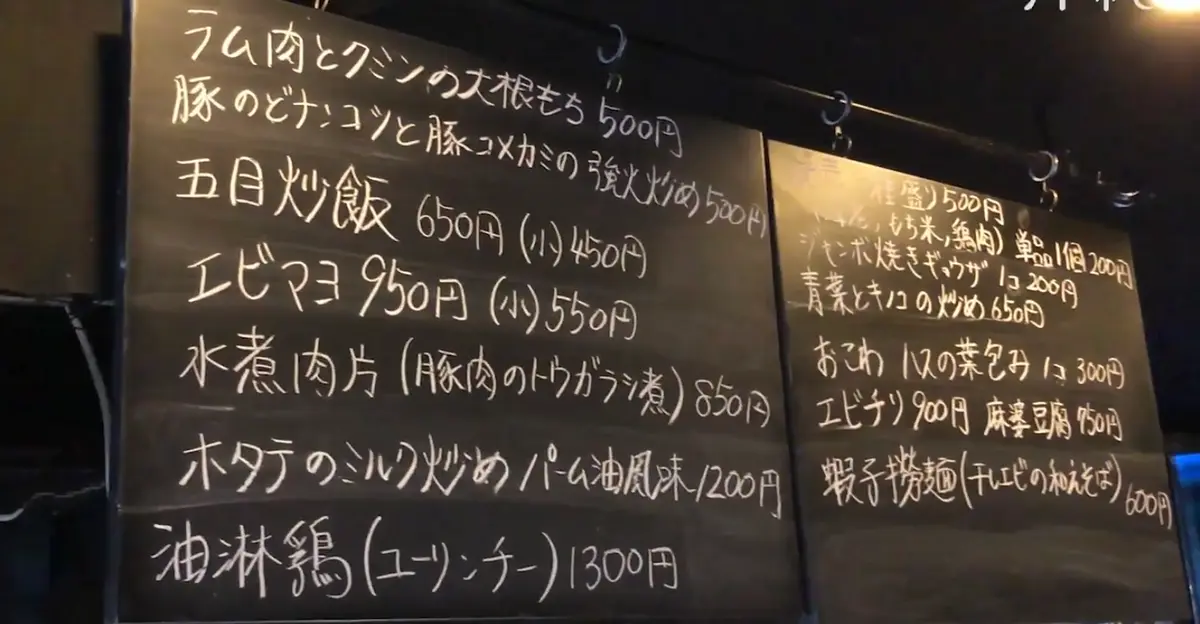 ラム肉とクミンの大根もち 500円
豚のどナンコツと豚コメカミの強火炒め500円
五目炒飯 650円 (小)450円
エビマヨ 950円 (小)550円
水煮肉片 (豚肉のトウガラシ煮) 850円
ホタテのミルク炒め パーム油風味 1200円
油淋鶏 (ユーリンチー) 1300円
盛り500円
もち米,鶏肉) 単品1個200円
ジャンボ焼きギョウザ 1コ 200円
青菜とキノコの炒め 650円
おこわ ハスの葉包み 1コ 300円
エビチリ 900円 麻婆豆腐 750円
蝦子撈麺 (干しエビの和えそば) 600円